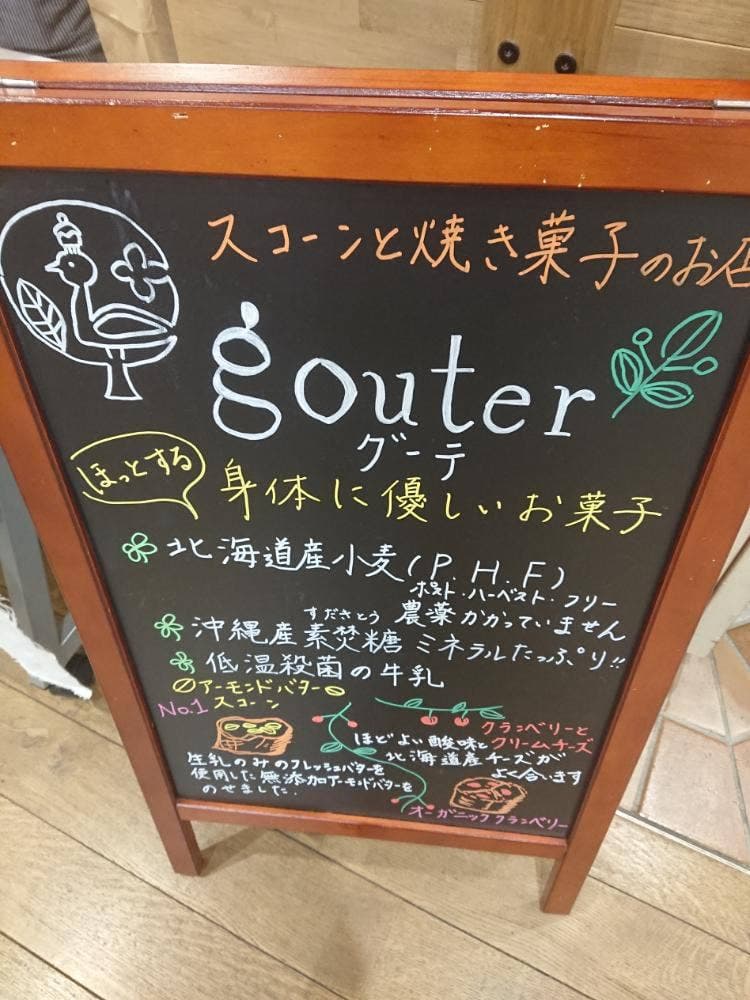 スコーンと焼き菓子のお店
gouter
グーテ
ほっとする
身体に優しいお菓子
北海道産小麦(P.H.F)
ポスト・ハーベスト・フリー
農薬かかっていません
すだきとう
沖縄産素焚糖 ミネラルたっぷり!!
低温殺菌の牛乳
アーモンドバター
No.1 スコーン
生乳のみのフレッシュバターを
使用した無添加アーモンドバターを
のせました.
クランベリーと
クリームチーズ
ほどよい酸味と
北海道産チーズが
よく合います
オーガニッククランベリー